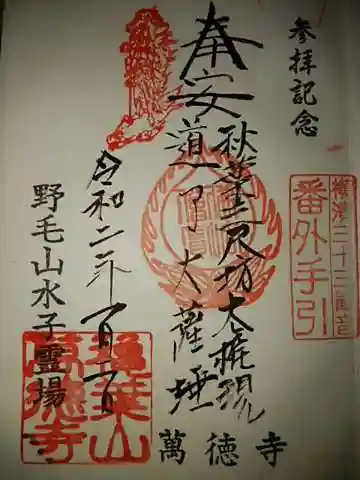 参拝記念
奉安
秋葉三尺坊大権現
道了大薩埵
令和二年一月一一日
野毛山水子霊場
萬徳寺
横濱二十三觀音
番外手引